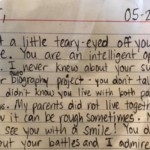 , 05-2
t a little teary-eyed off you
e. You are an intelligent
I never knew about your su
biography project - you don't talk
didn't know you live with both pa
s. My parents did not live togeth
w it can be rough sometimes.
see you with a smile! You d
out your battles and I admire